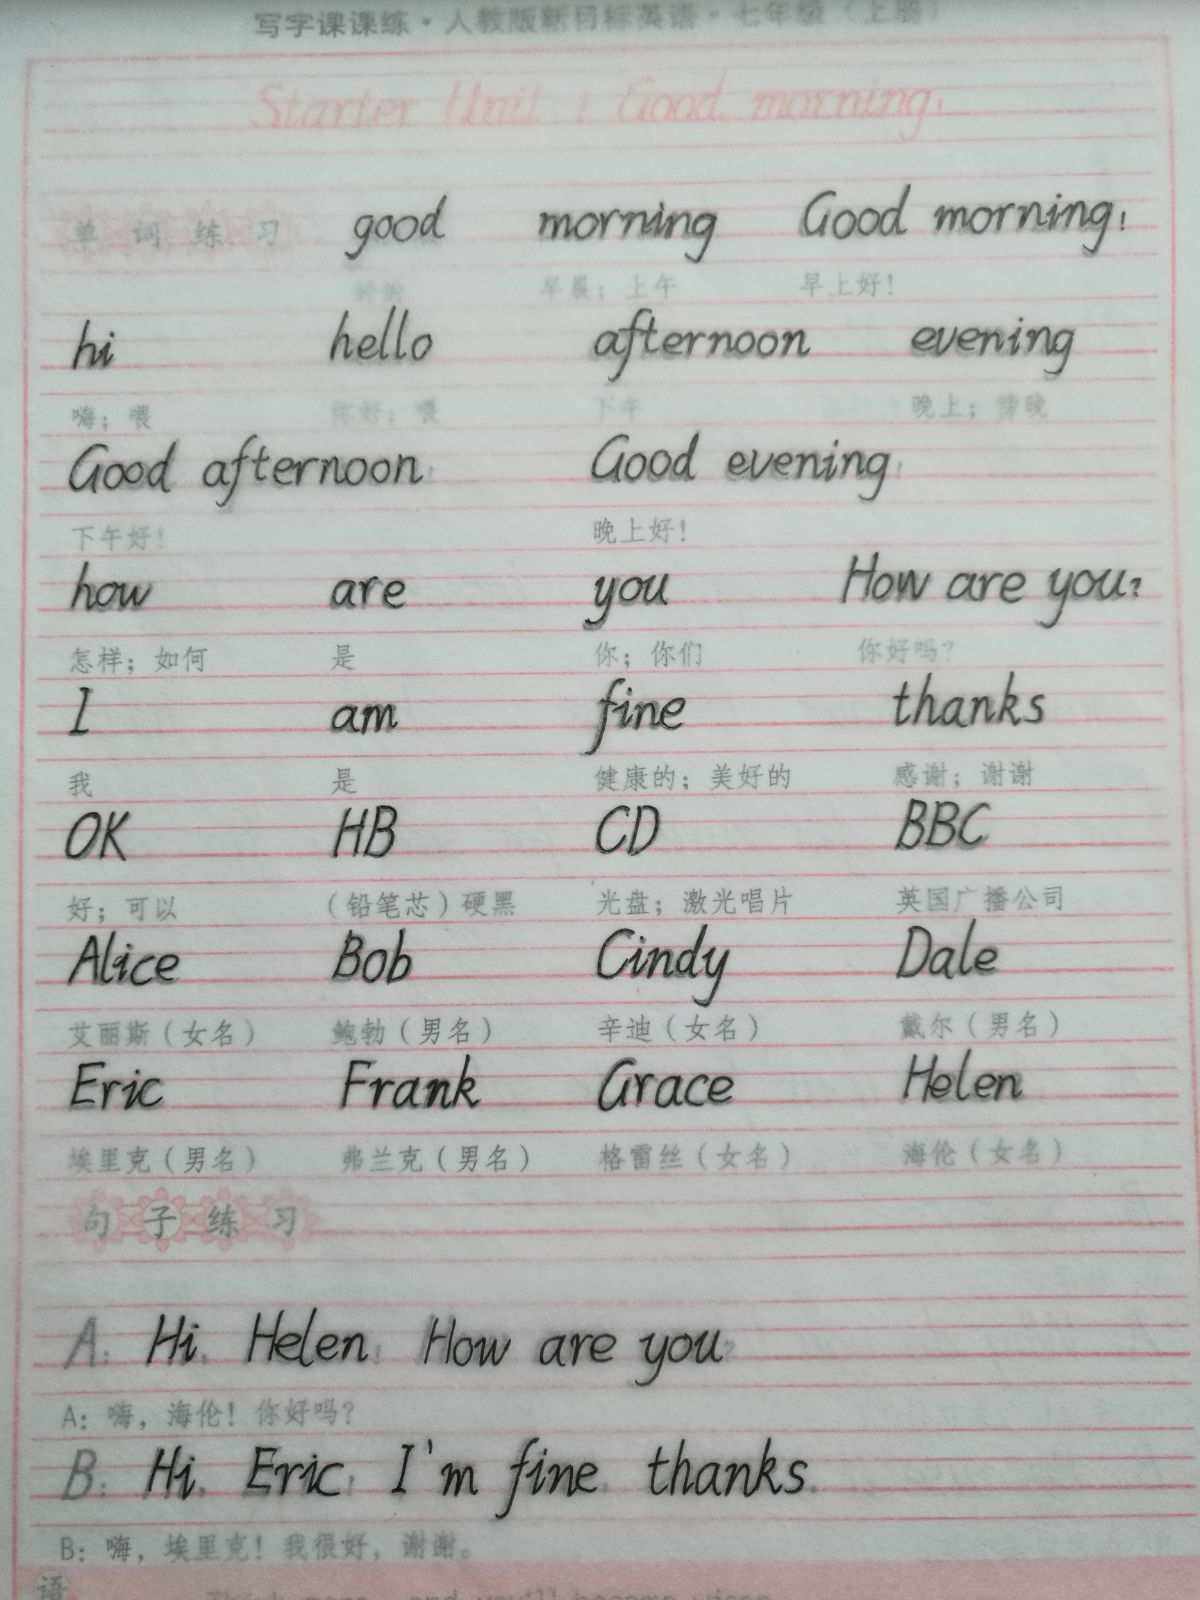 写字课课练·人教版新目标英语·七年级（上册）
Starter Unit 1 Good morning!
单词练习 good morning Good morning!
早晨；上午 早上好！
hi hello afternoon evening
嗨；喂 你好；喂 下午 晚上；傍晚
Good afternoon! Good evening!
下午好！ 晚上好！
how are you How are you?
怎样；如何 是 你；你们 你好吗？
I am fine thanks
我 是 健康的；美好的 感谢；谢谢
OK HB CD BBC
好；可以 （铅笔芯）硬黑 光盘；激光唱片 英国广播公司
Alice Bob Cindy Dale
艾丽斯（女名） 鲍勃（男名） 辛迪（女名） 戴尔（男名）
Eric Frank Grace Helen
埃里克（男名） 弗兰克（男名） 格雷丝（女名） 海伦（女名）
句子练习
A: Hi, Helen! How are you?
A：嗨，海伦！你好吗？
B: Hi, Eric! I'm fine, thanks.
B：嗨，埃里克！我很好，谢谢。
语 Think more, and you'll become wiser